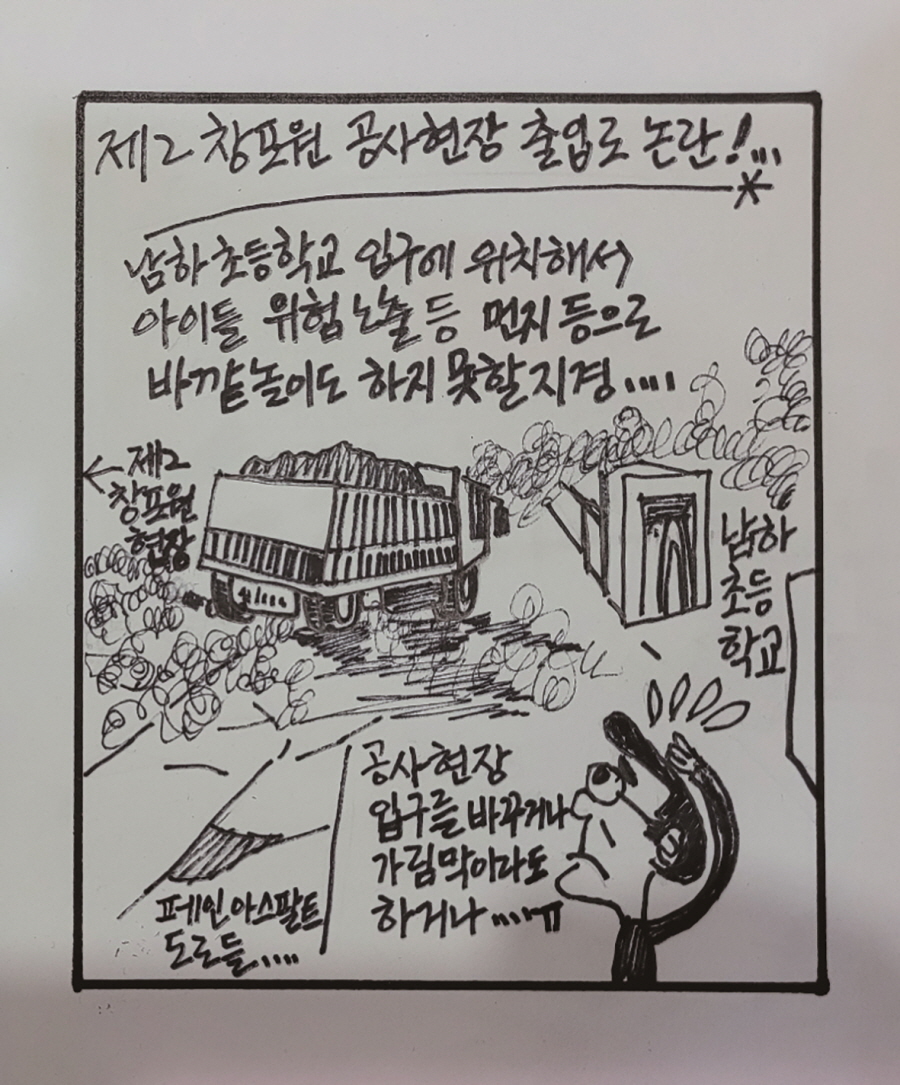 제2 창포원 공사현장 출입로 논란!...
남하초등학교 입구에 위치해서
아이들 위험노출 등 먼지 등으로
바깥놀이도 하지 못할지경....
←제2
창포원
현장
남하
초등
학교
공사현장
입구를 바꾸거나
가림막이라도
하거나....ㅠ
페인 아스팔트
도로들....